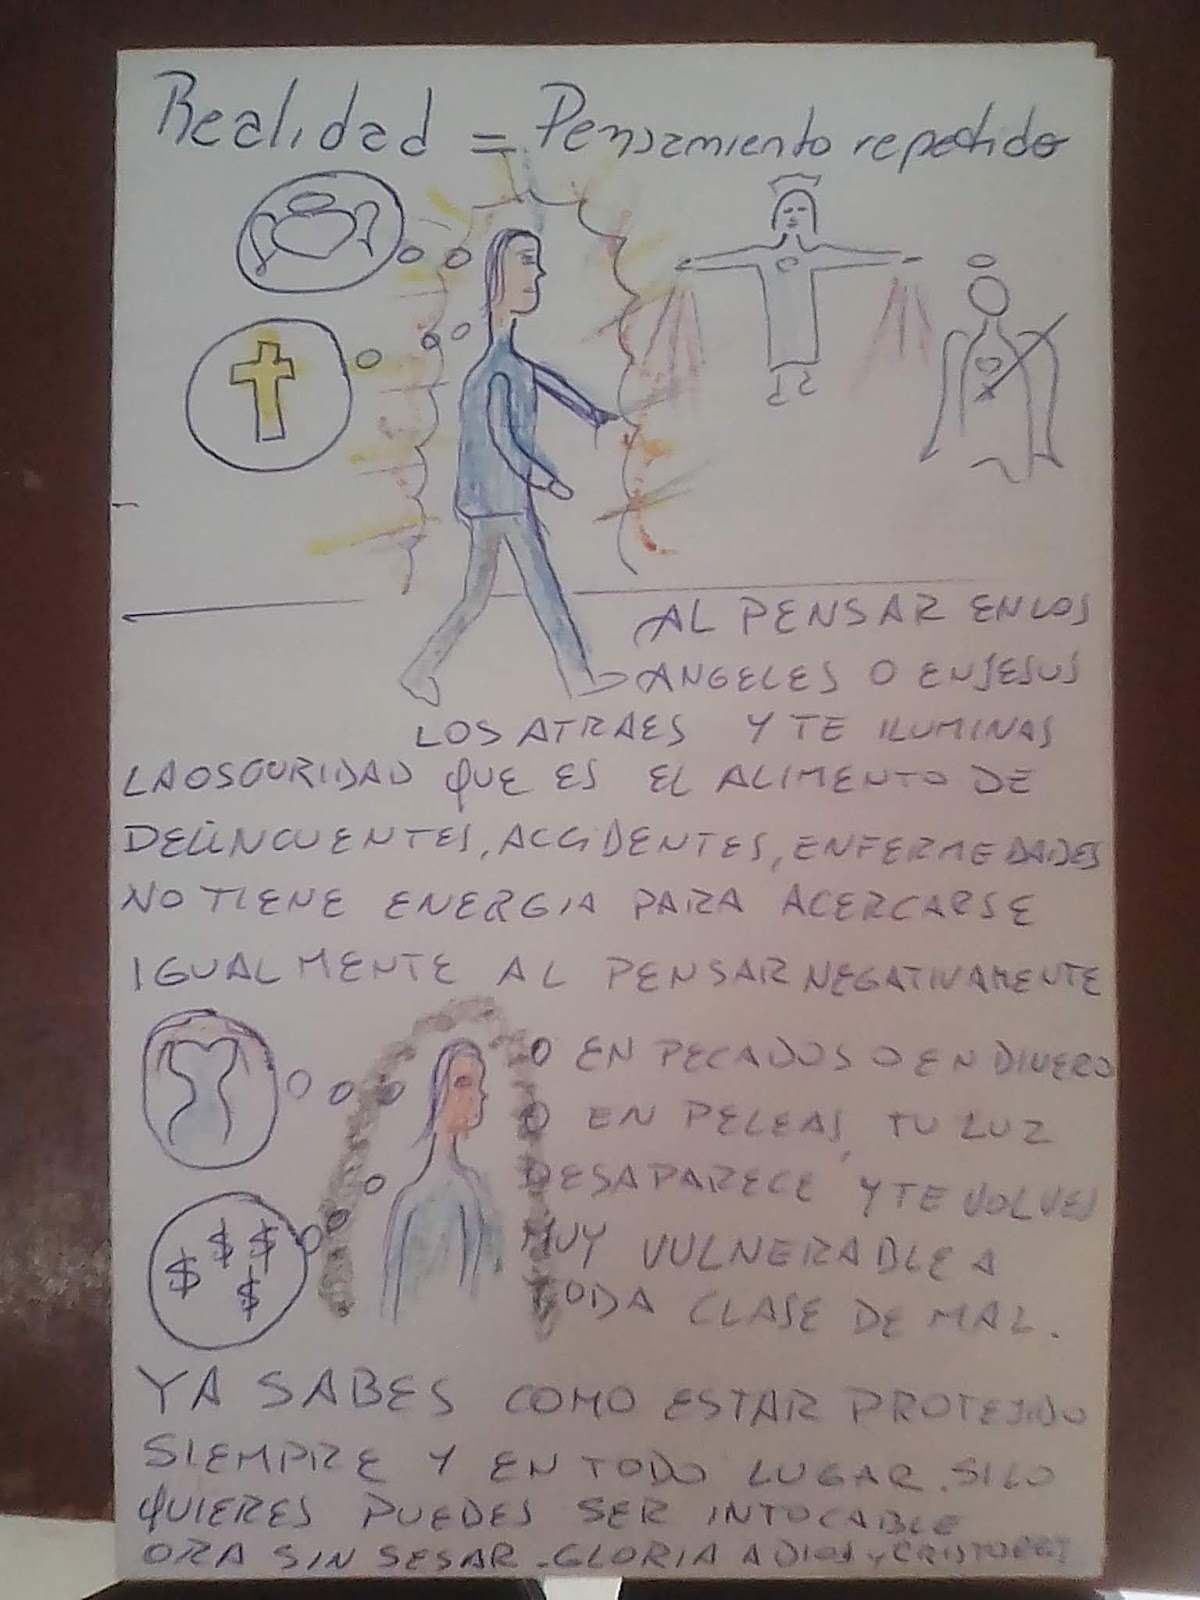 Realidad = Pensamiento repetido
AL PENSAR EN LOS
ANGELES O EN JESUS
LOS ATRAES Y TE ILUMINAS
LA OSCURIDAD QUE ES EL ALIMENTO DE
DELINCUENTES, ACCIDENTES, ENFERMEDADES
NO TIENE ENERGIA PARA ACERCARSE
IGUALMENTE AL PENSAR NEGATIVAMENTE
O EN PECADOS O EN DINERO
O EN PELEAS, TU LUZ
DESAPARECE Y TE VOLVES
MUY VULNERABLE A
TODA CLASE DE MAL.
$ $ $ $
YA SABES COMO ESTAR PROTEJIDO
SIEMPRE Y EN TODO LUGAR. SI LO
QUIERES PUEDES SER INTOCABLE
ORA SIN SESAR. GLORIA A DIOS Y CRISTO REY